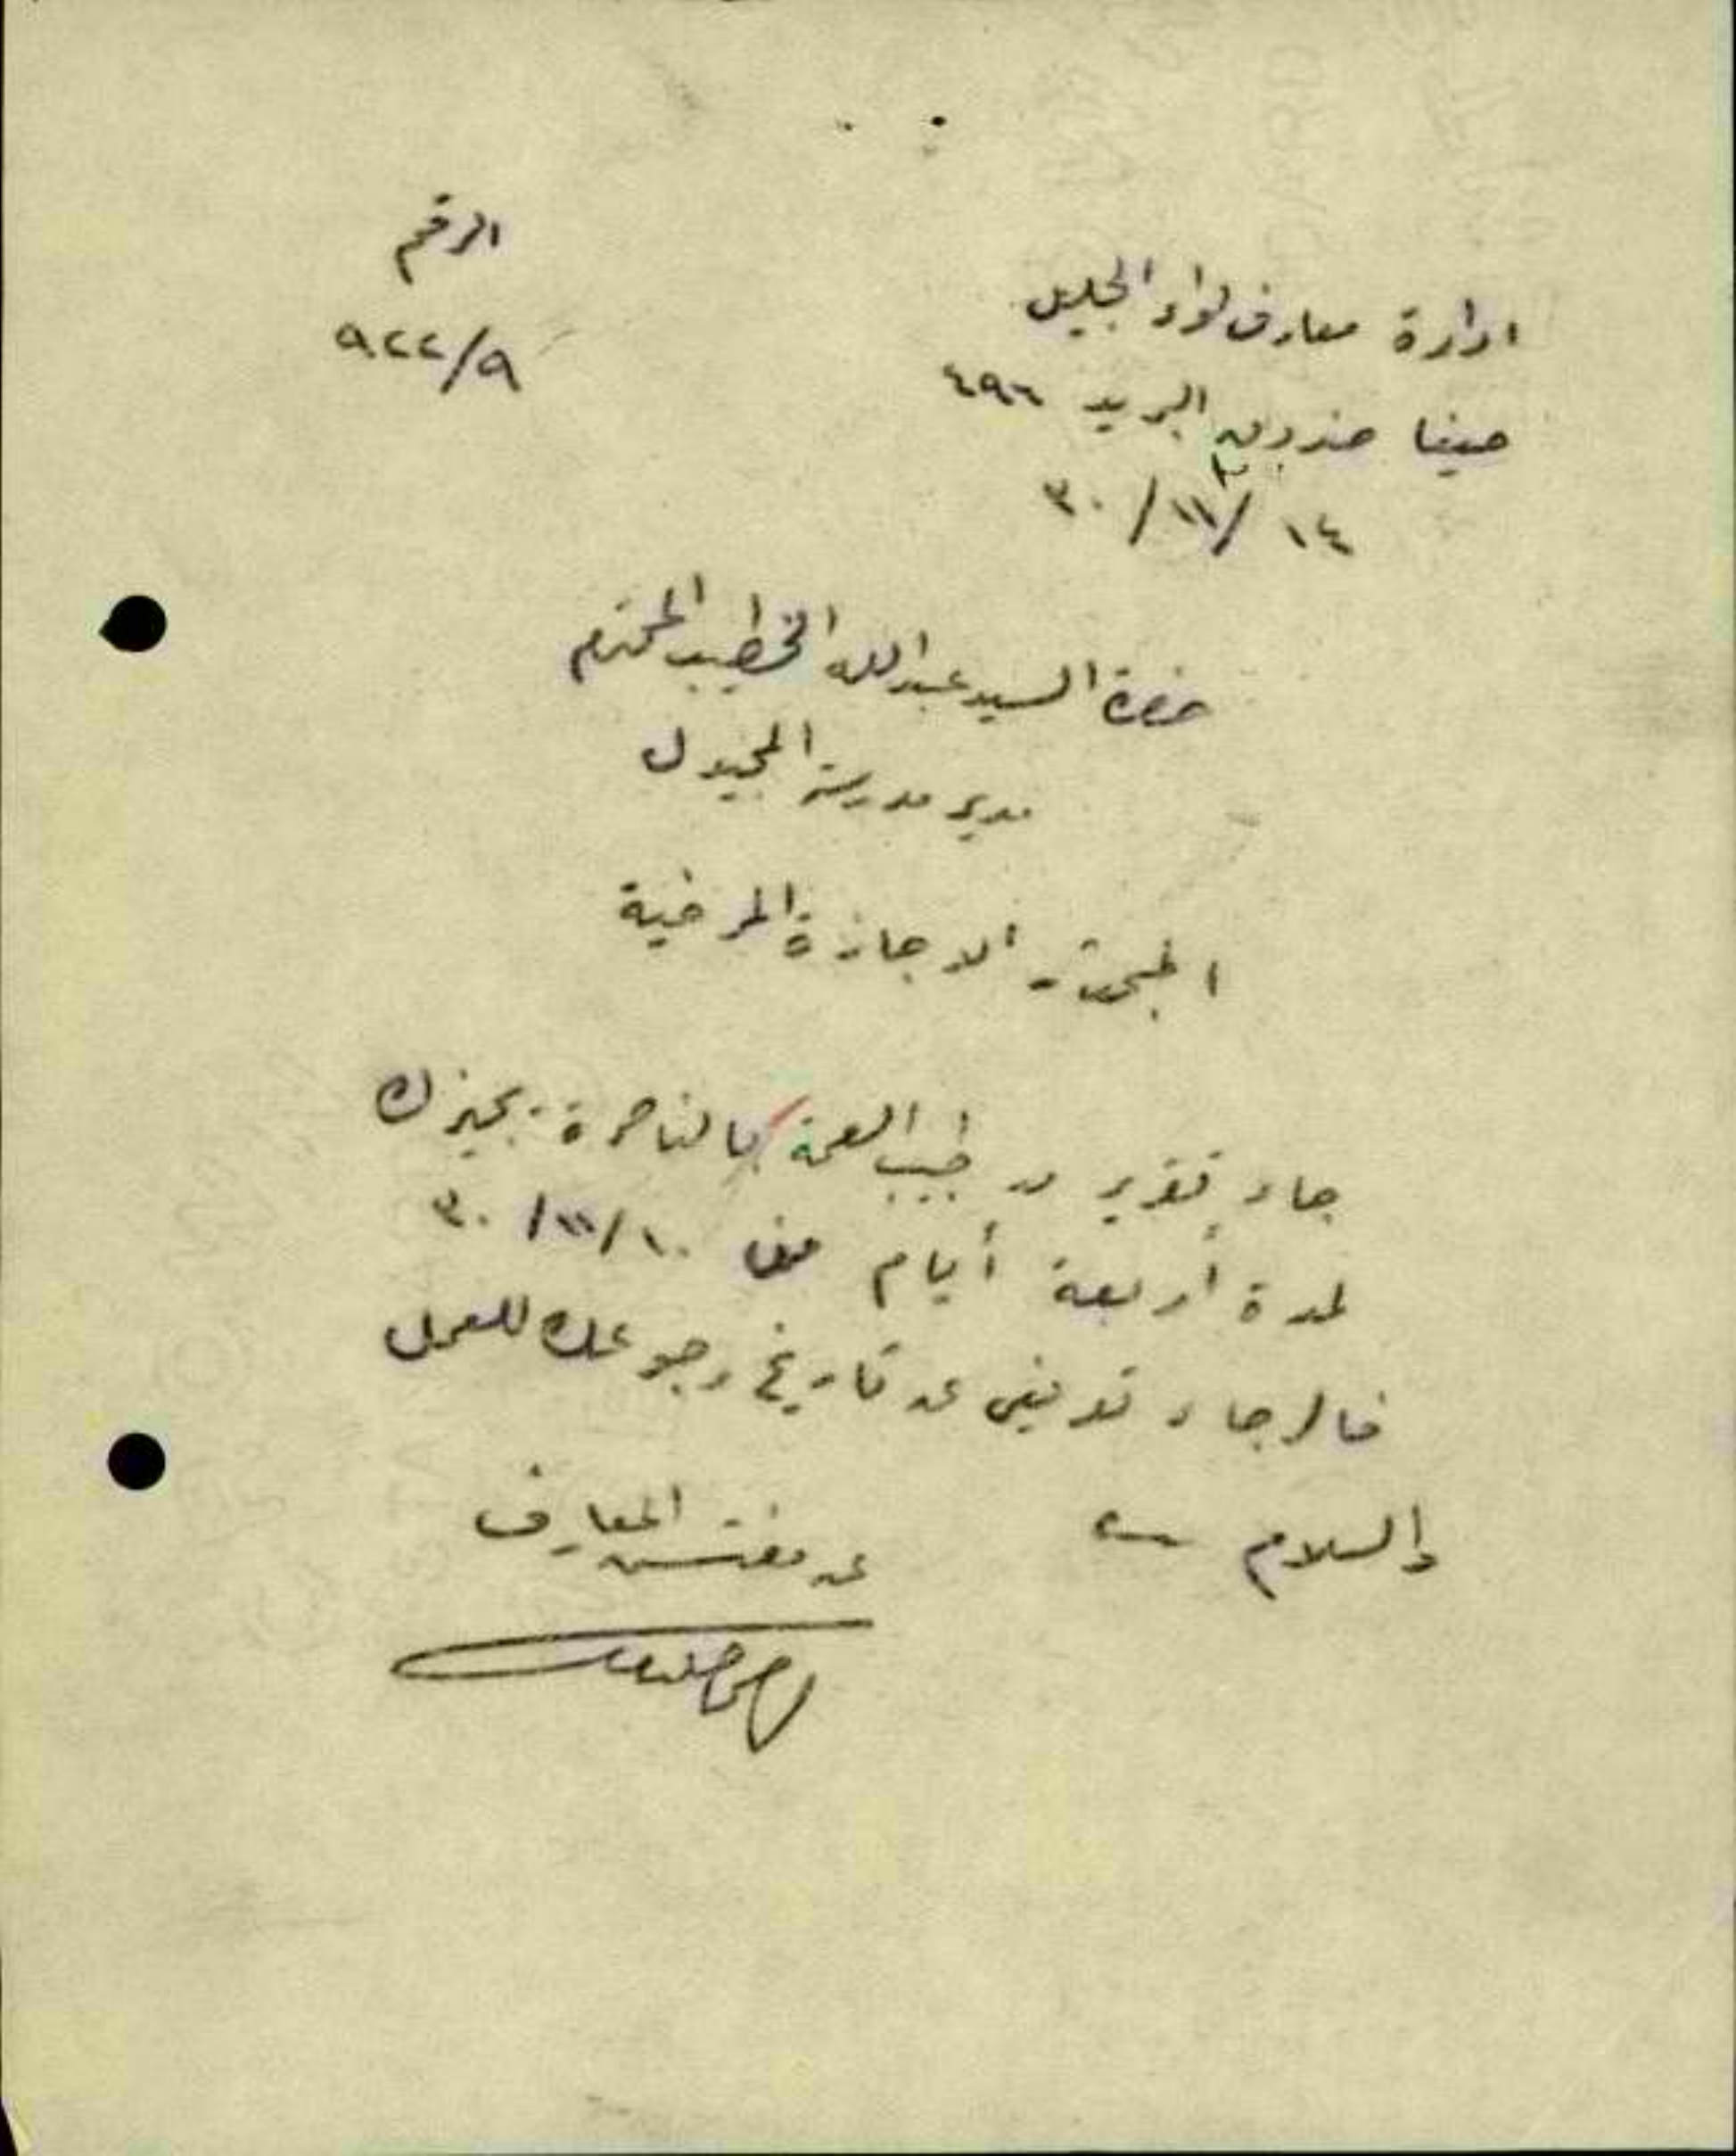 الرقم
٩٢٢/٩
ادارة معارف لواء الجليل
حيفا صندوق البريد ٤٩٦
١٤ /١١/ ٣٠
حضرة السيد عبدالله الخطيب المحترم
مدير مدرسة المجيدل
المبحوث - الاجازة المرضية
جاء تقرير من طبيب الصحة بالناصرة يجيزك
لمدة أربعة أيام من ١٠ /١١/ ٣٠
فالرجاء تعريفي عن تاريخ رجوعك للعمل
والسلام
عن مفتش المعارف